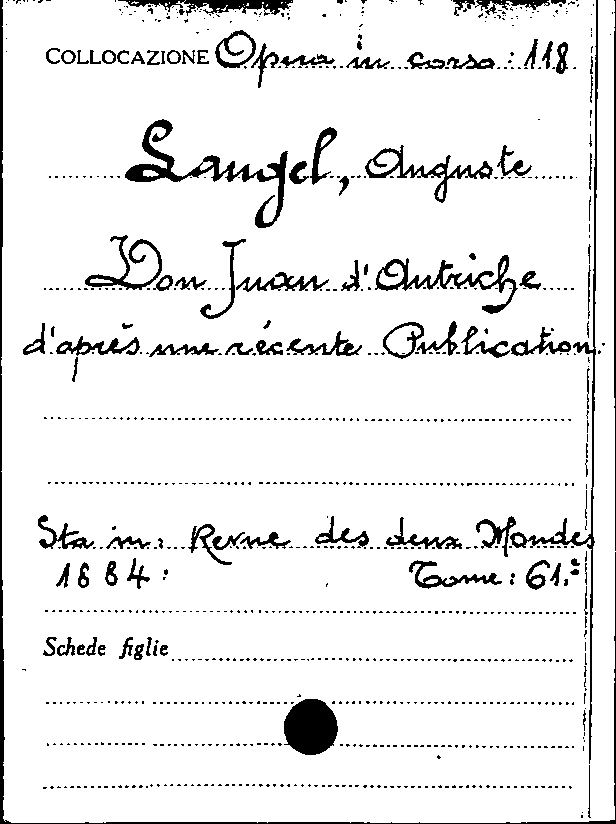 COLLOCAZIONE Opera in corso: 118
Laugel, Auguste
Don Juan d'Autriche
d'après une récente Publication.
Sta in: Revue des deux Mondes
1884: Tome: 61.º
Schede figlie